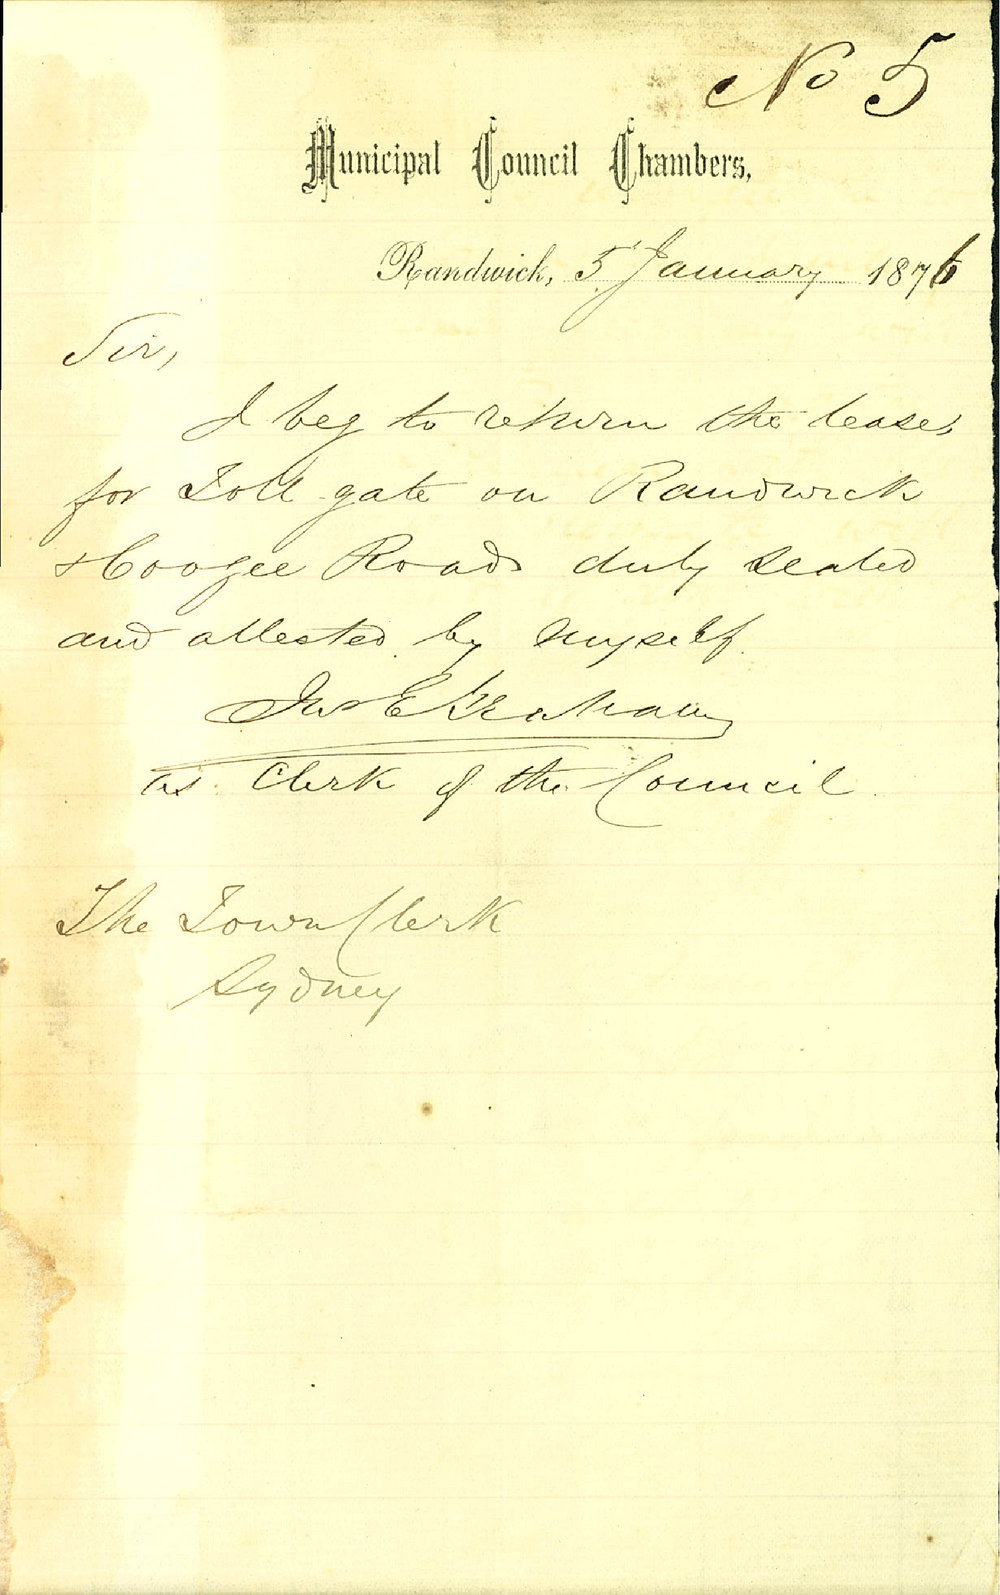 No 5
Municipal Council Chambers,
Randwick, 5 January 1876
Sir,
I beg to return the lease,
for Toll gate on Randwick
& Coogee Roads duly sealed
and attested by myself.
as Clerk of the Council.
The Town Clerk
Sydney